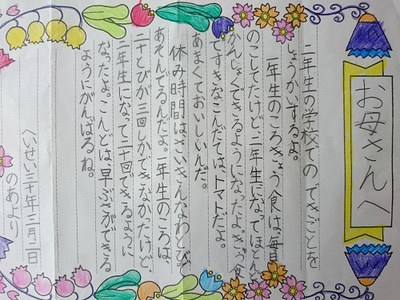 お母さんへ
二年生の学校でのできごとを
しょうかいするよ。
一年生のころきゅう食は、毎日
のこしてたけど二年生になってほとんど
かんしょくできるようになったよ。きゅう食
ですきなこんだては、トマトだよ。
あまくておいしいんだ。
休み時間はさいきんなわとびで
あそんでるんだよ。一年生のころは
二十とびが三回しかできなかたけど、
二年生になって二十回できるように
なったよ。こんどは、早ぶさができる
ようにがんばるね。
へいせい三十年三月二日
のあより